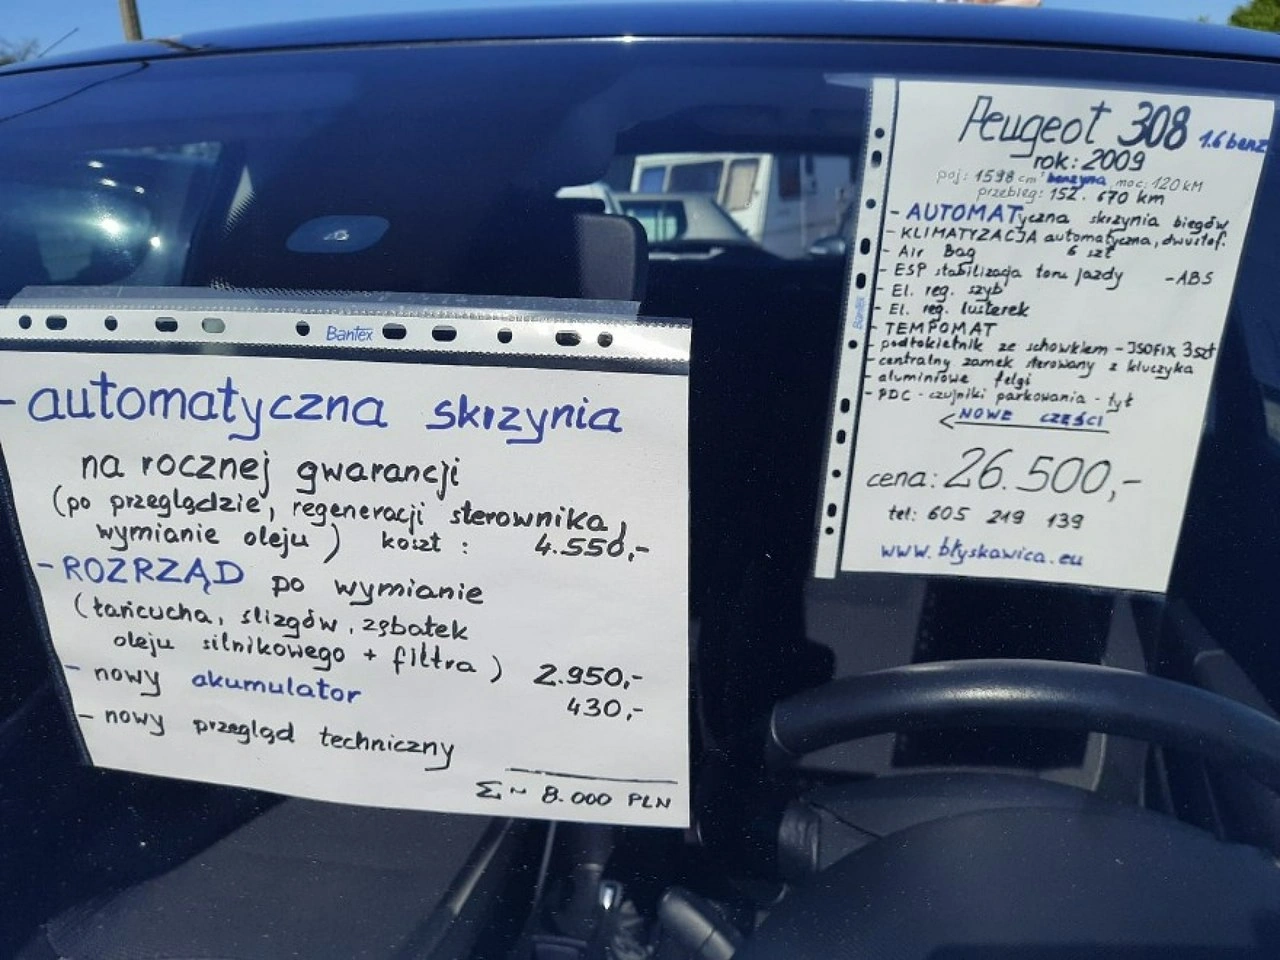 Bantex
- automatyczna skrzynia
na rocznej gwarancji
(po przeglądzie, regeneracji sterownika,
wymianie oleju) koszt : 4.550,-
- ROZRZĄD po wymianie
(łańcucha, ślizgów, zębatek
oleju silnikowego + filtra) 2.950,-
- nowy akumulator 430,-
- nowy przegląd techniczny
Σ ~ 8.000 PLN
Peugeot 308 1.6 benz
rok: 2009
poj: 1598 cm³ benzyna moc: 120 kM
przebieg: 152.670 km
- AUTOMATyczna skrzynia biegów
- KLIMATYZACJA automatyczna, dwustef.
- Air Bag 6 szt
- ESP stabilizacja toru jazdy - ABS
- El. reg. szyb
- El. reg. lusterek
- TEMPOMAT
- podłokietnik ze schowkiem - ISOFIX 3szt
- centralny zamek sterowany z kluczyka
- aluminiowe felgi
- PDC - czujniki parkowania - tył
← NOWE CZĘŚCI
cena: 26.500,-
tel: 605 219 139
www.błyskawica.eu
Bantex